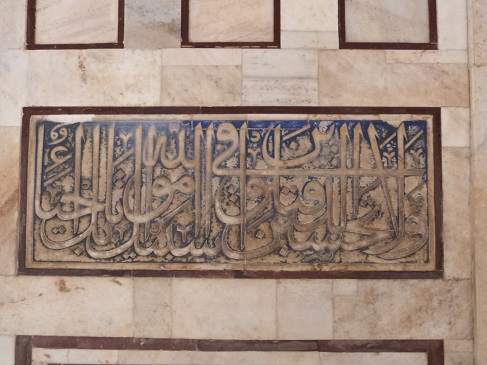 ولا تحسبن الذين قتلوا في سبيل الله امواتا بل احياء